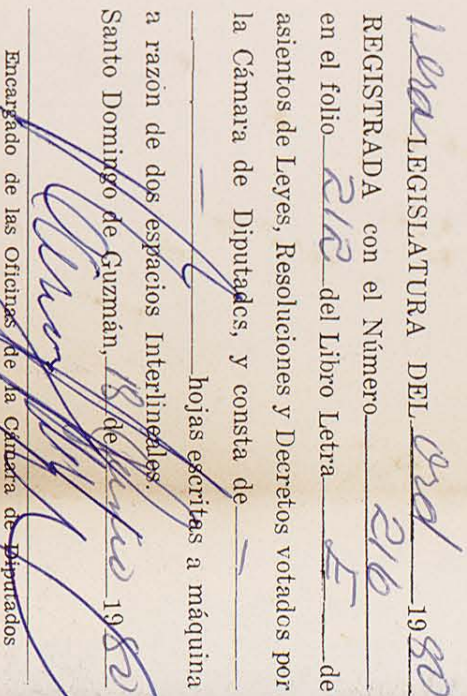 1era LEGISLATURA DEL Ord 1980
REGISTRADA con el Número 216
en el folio 212 del Libro Letra E de
asientos de Leyes, Resoluciones y Decretos votados por
la Cámara de Diputados, y consta de —
— hojas escritas a máquina
a razón de dos espacios Interlineales.
Santo Domingo de Guzmán, 18 de Junio 1980
Encargado de las Oficinas de la Cámara de Diputados